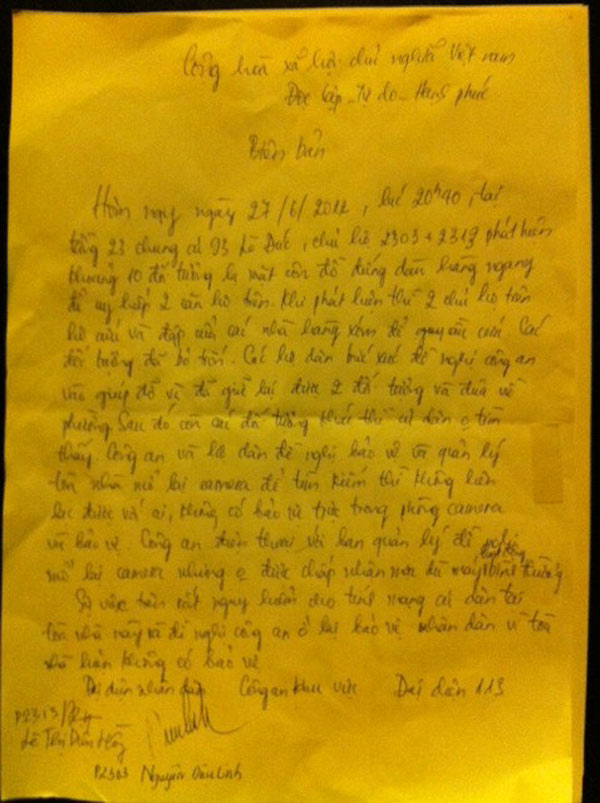 Cộng hòa xã hội chủ nghĩa Việt Nam
Độc lập - Tự do - Hạnh phúc
Biên bản
Hôm nay ngày 27/6/2012, lúc 20h40, tại
tầng 23 chung cư 93 Lò Đúc, chủ hộ 2303 + 2313 phát hiện
khoảng 10 đối tượng lạ mặt côn đồ đứng dàn hàng ngang
để uy hiếp 2 căn hộ trên. Khi phát hiện thì 2 chủ hộ trên
hô cứu và đập cửa các nhà hàng xóm để cứu. Các
đối tượng đã bỏ trốn. Các hộ dân bức xúc đề nghị công an
vào giúp đỡ và đã giữ lại được 2 đối tượng và đưa về
phường. Sau đó còn các đối tượng khác thì cư dân tìm
thấy. Công an và hộ dân đề nghị bảo vệ và quản lý
tòa nhà mở lại camera để tìm kiếm thì không liên
lạc được với ai, không có bảo vệ trực trong phòng camera
và bảo vệ. Công an điện thoại với ban quản lý đề nghị
mở lại camera nhưng được chấp nhận máy bình thường
Sự việc trên rất nguy hiểm cho tính mạng cư dân tại
tòa nhà này và đề nghị công an ở lại bảo vệ nhân dân vì tòa
nhà hiện không có bảo vệ
Đại diện nhân dân Công an khu vực Đại diện 113
P2313
Lê Thị
P2303 Nguyễn Diệu Linh